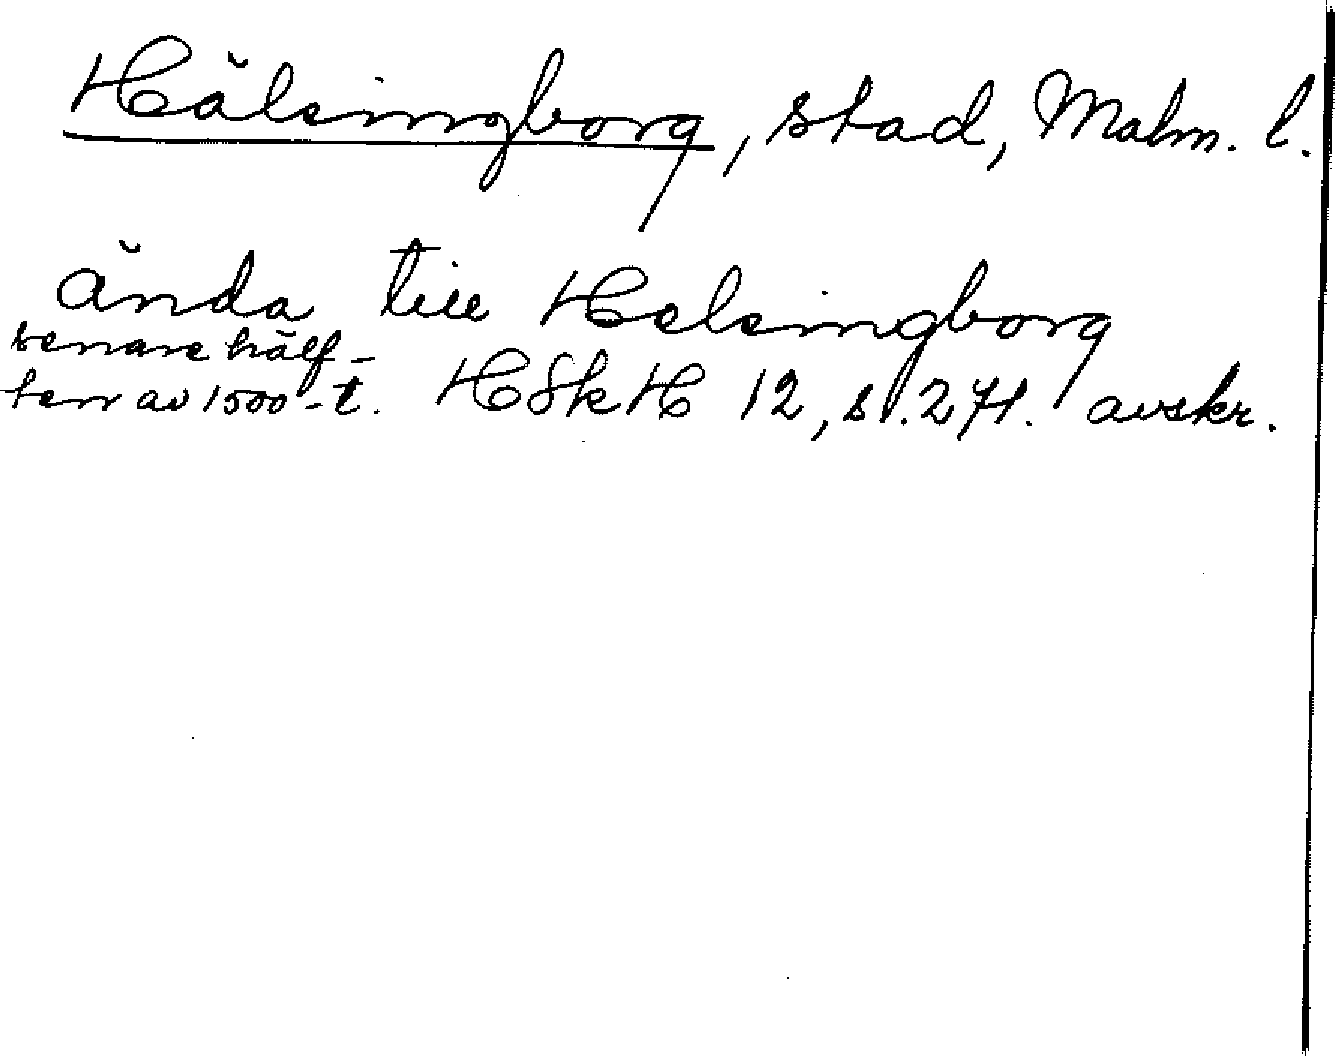 Hälsingborg, stad, Malm. l.
ända till Helsingborg
senare hälf-
ten av 1500-t. HSkH 12, s. 271. avskr.